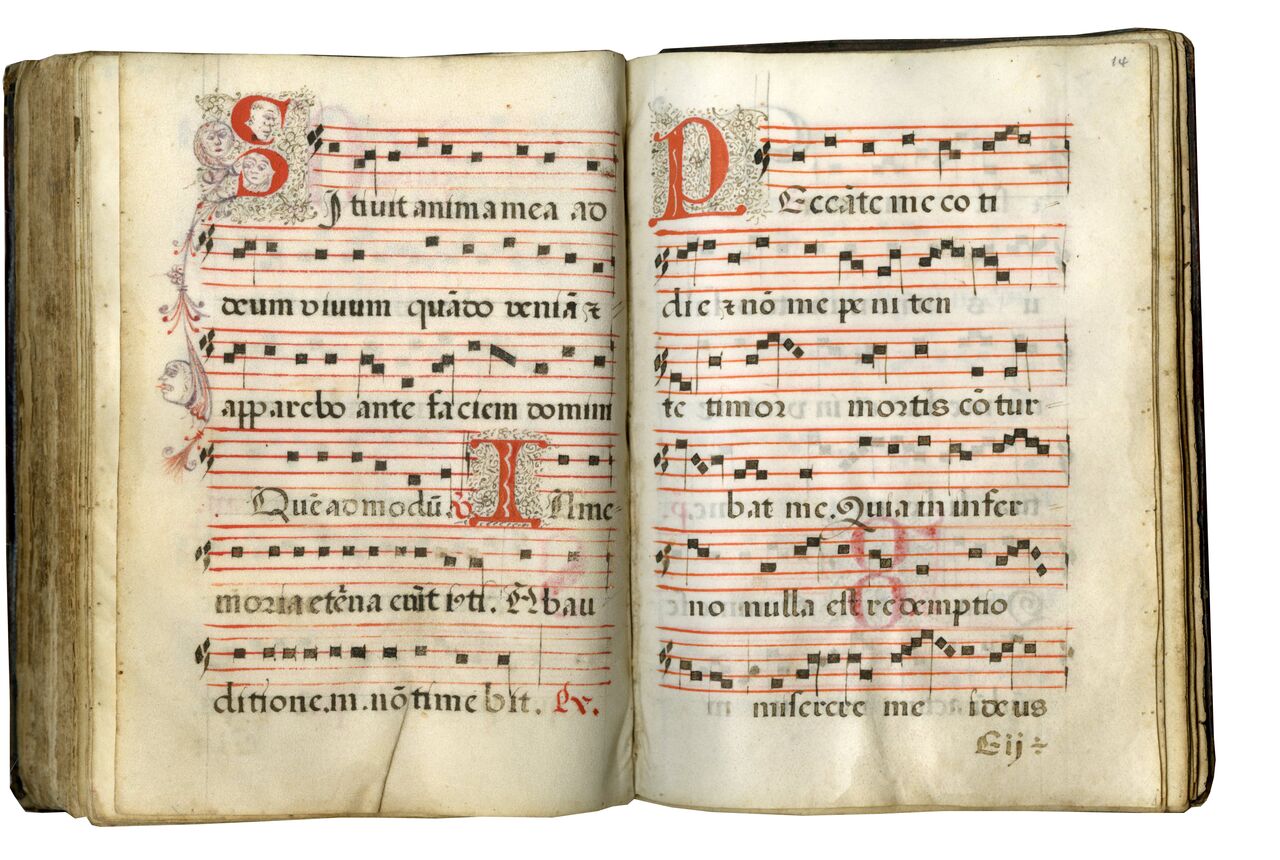 SItiuit anima mea ad
deum viuum quãdo veniã &
apparebo ante faciem domini
Quẽadmodũ. INme-
moria etẽrna erũt iʳti. Ab au
ditione.m.nõ timebit. Lx.
14
PEccãte me coti
die & nõ me peniten
te timor mortis cõtur
bat me. Quia in infer
no nulla est redemptio
miserere me i deus
Eij